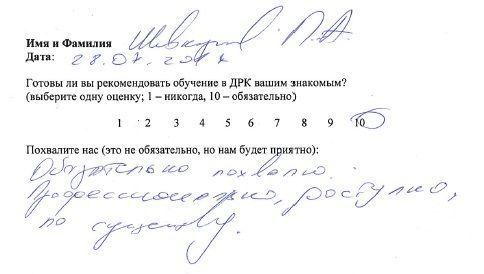 Имя и Фамилия П.А.
Дата: 28.07.
Готовы ли вы рекомендовать обучение в ДРК вашим знакомым?
(выберите одну оценку; 1 – никогда, 10 – обязательно)
1 2 3 4 5 6 7 8 9 10
Похвалите нас (это не обязательно, но нам будет приятно):
Обязательно похвалю.
Профессионально, доступно,
по существу.